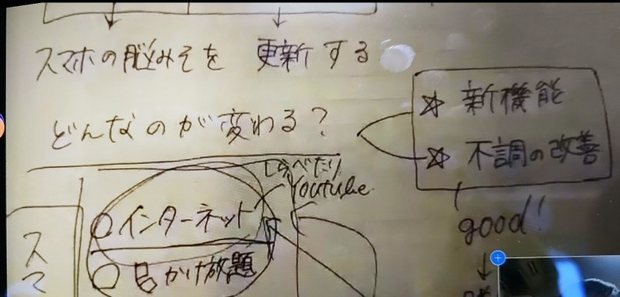 スマホの脳みそを 更新する
どんなのが変わる?
☆ 新機能
☆ 不調の改善
good!
しゃべたり
Youtube
○ インターネット
○ かけ放題
スマ